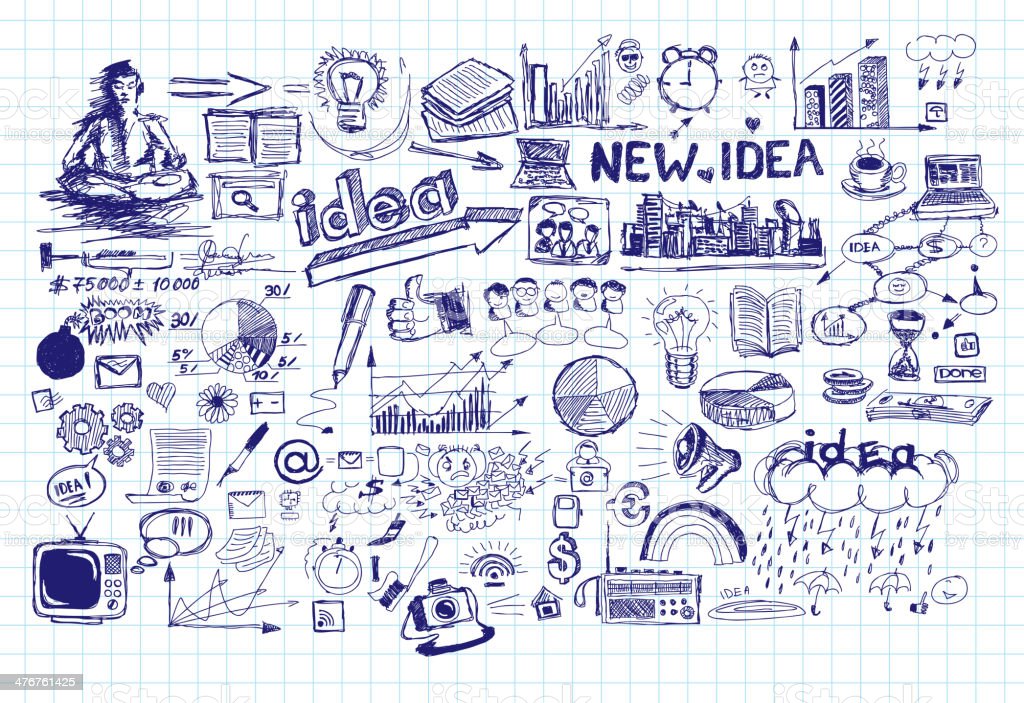 NEW IDEA
idea
IDEA
$
?
$ 75 000 ± 10 000
BOOM
30%
30/
5/
5%
5/
5/
10/
DONE
idea
@
$
IDEA!
!!!
€
$
IDEA
+ -
iStock
by Getty Images
476761425